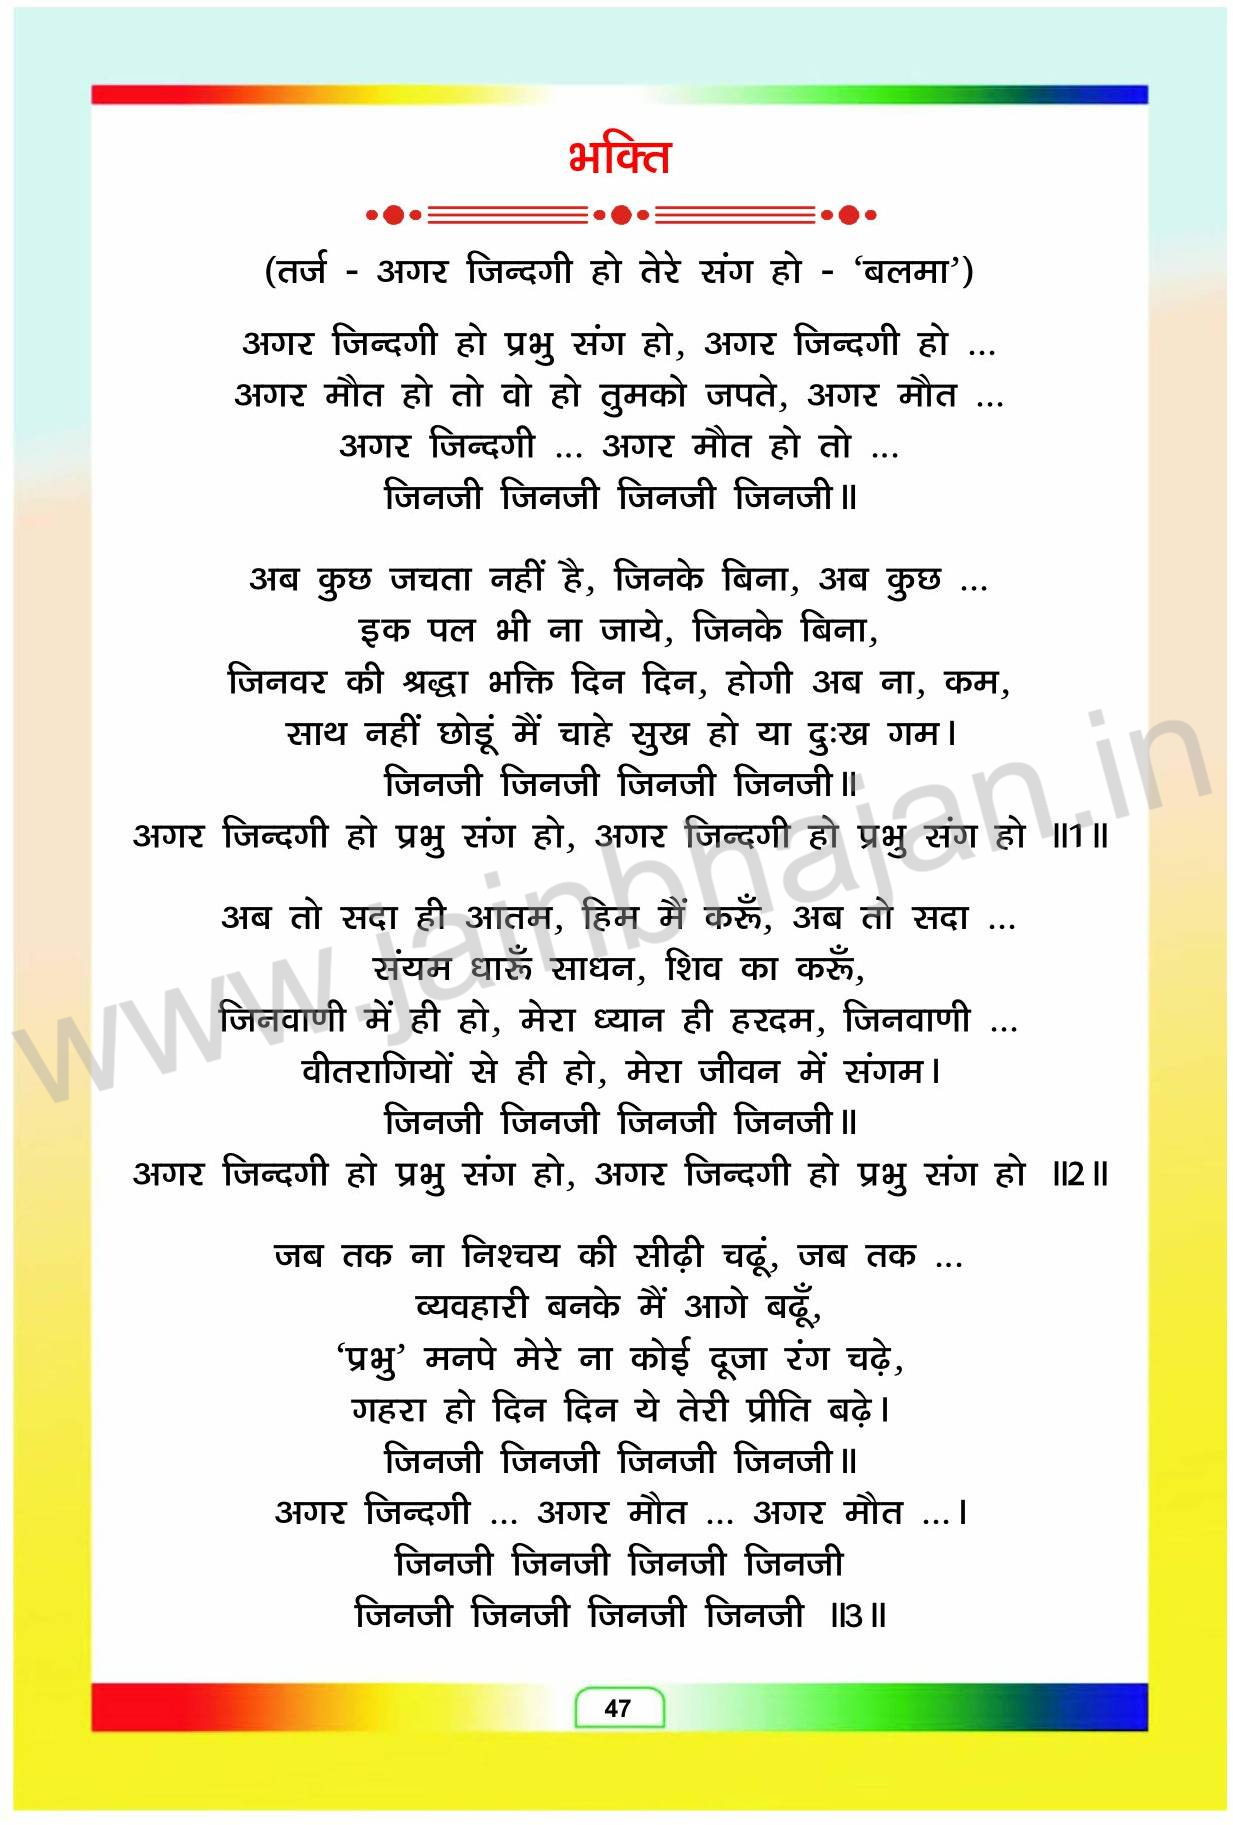 भक्ति
(तर्ज - अगर जिन्दगी हो तेरे संग हो - ‘बलमा’)
अगर जिन्दगी हो प्रभु संग हो, अगर जिन्दगी हो ...
अगर मौत हो तो वो हो तुमको जपते, अगर मौत ...
अगर जिन्दगी ... अगर मौत हो तो ...
जिनजी जिनजी जिनजी जिनजी॥
अब कुछ जचता नहीं है, जिनके बिना, अब कुछ ...
इक पल भी ना जाये, जिनके बिना,
जिनवर की श्रद्धा भक्ति दिन दिन, होगी अब ना, कम,
साथ नहीं छोडूं मैं चाहे सुख हो या दुःख गम।
जिनजी जिनजी जिनजी जिनजी॥
अगर जिन्दगी हो प्रभु संग हो, अगर जिन्दगी हो प्रभु संग हो ॥1॥
अब तो सदा ही आतम, हिम मैं करूँ, अब तो सदा ...
संयम धारूँ साधन, शिव का करूँ,
जिनवाणी में ही हो, मेरा ध्यान ही हरदम, जिनवाणी ...
वीतरागियों से ही हो, मेरा जीवन में संगम।
जिनजी जिनजी जिनजी जिनजी॥
अगर जिन्दगी हो प्रभु संग हो, अगर जिन्दगी हो प्रभु संग हो ॥2॥
जब तक ना निश्चय की सीढ़ी चढूं, जब तक ...
व्यवहारी बनके मैं आगे बढूँ,
‘प्रभु’ मनपे मेरे ना कोई दूजा रंग चढ़े,
गहरा हो दिन दिन ये तेरी प्रीति बढ़े।
जिनजी जिनजी जिनजी जिनजी॥
अगर जिन्दगी ... अगर मौत ... अगर मौत ...।
जिनजी जिनजी जिनजी जिनजी
जिनजी जिनजी जिनजी जिनजी ॥3॥
47
www.jainbhajan.in